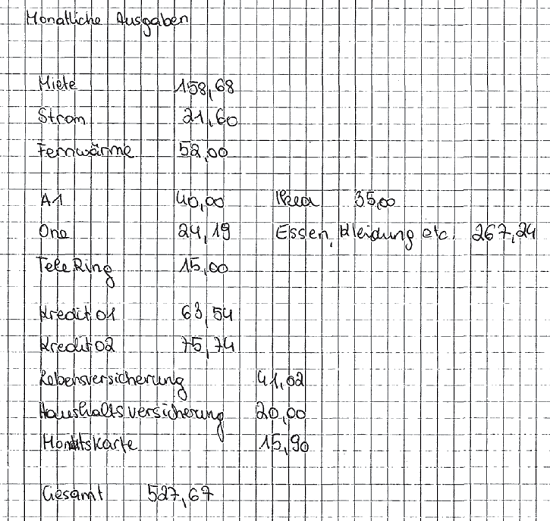 Monatliche Ausgaben
Miete 158,68
Strom 21,60
Fernwärme 52,00
A1 40,00 Ikea 35,00
One 24,19 Essen, Kleidung etc. 267,24
TeleRing 15,00
Kredit 01 63,54
Kredit 02 75,74
Lebensversicherung 41,02
Haushaltsversicherung 20,00
Monatskarte 15,90
Gesamt 527,67